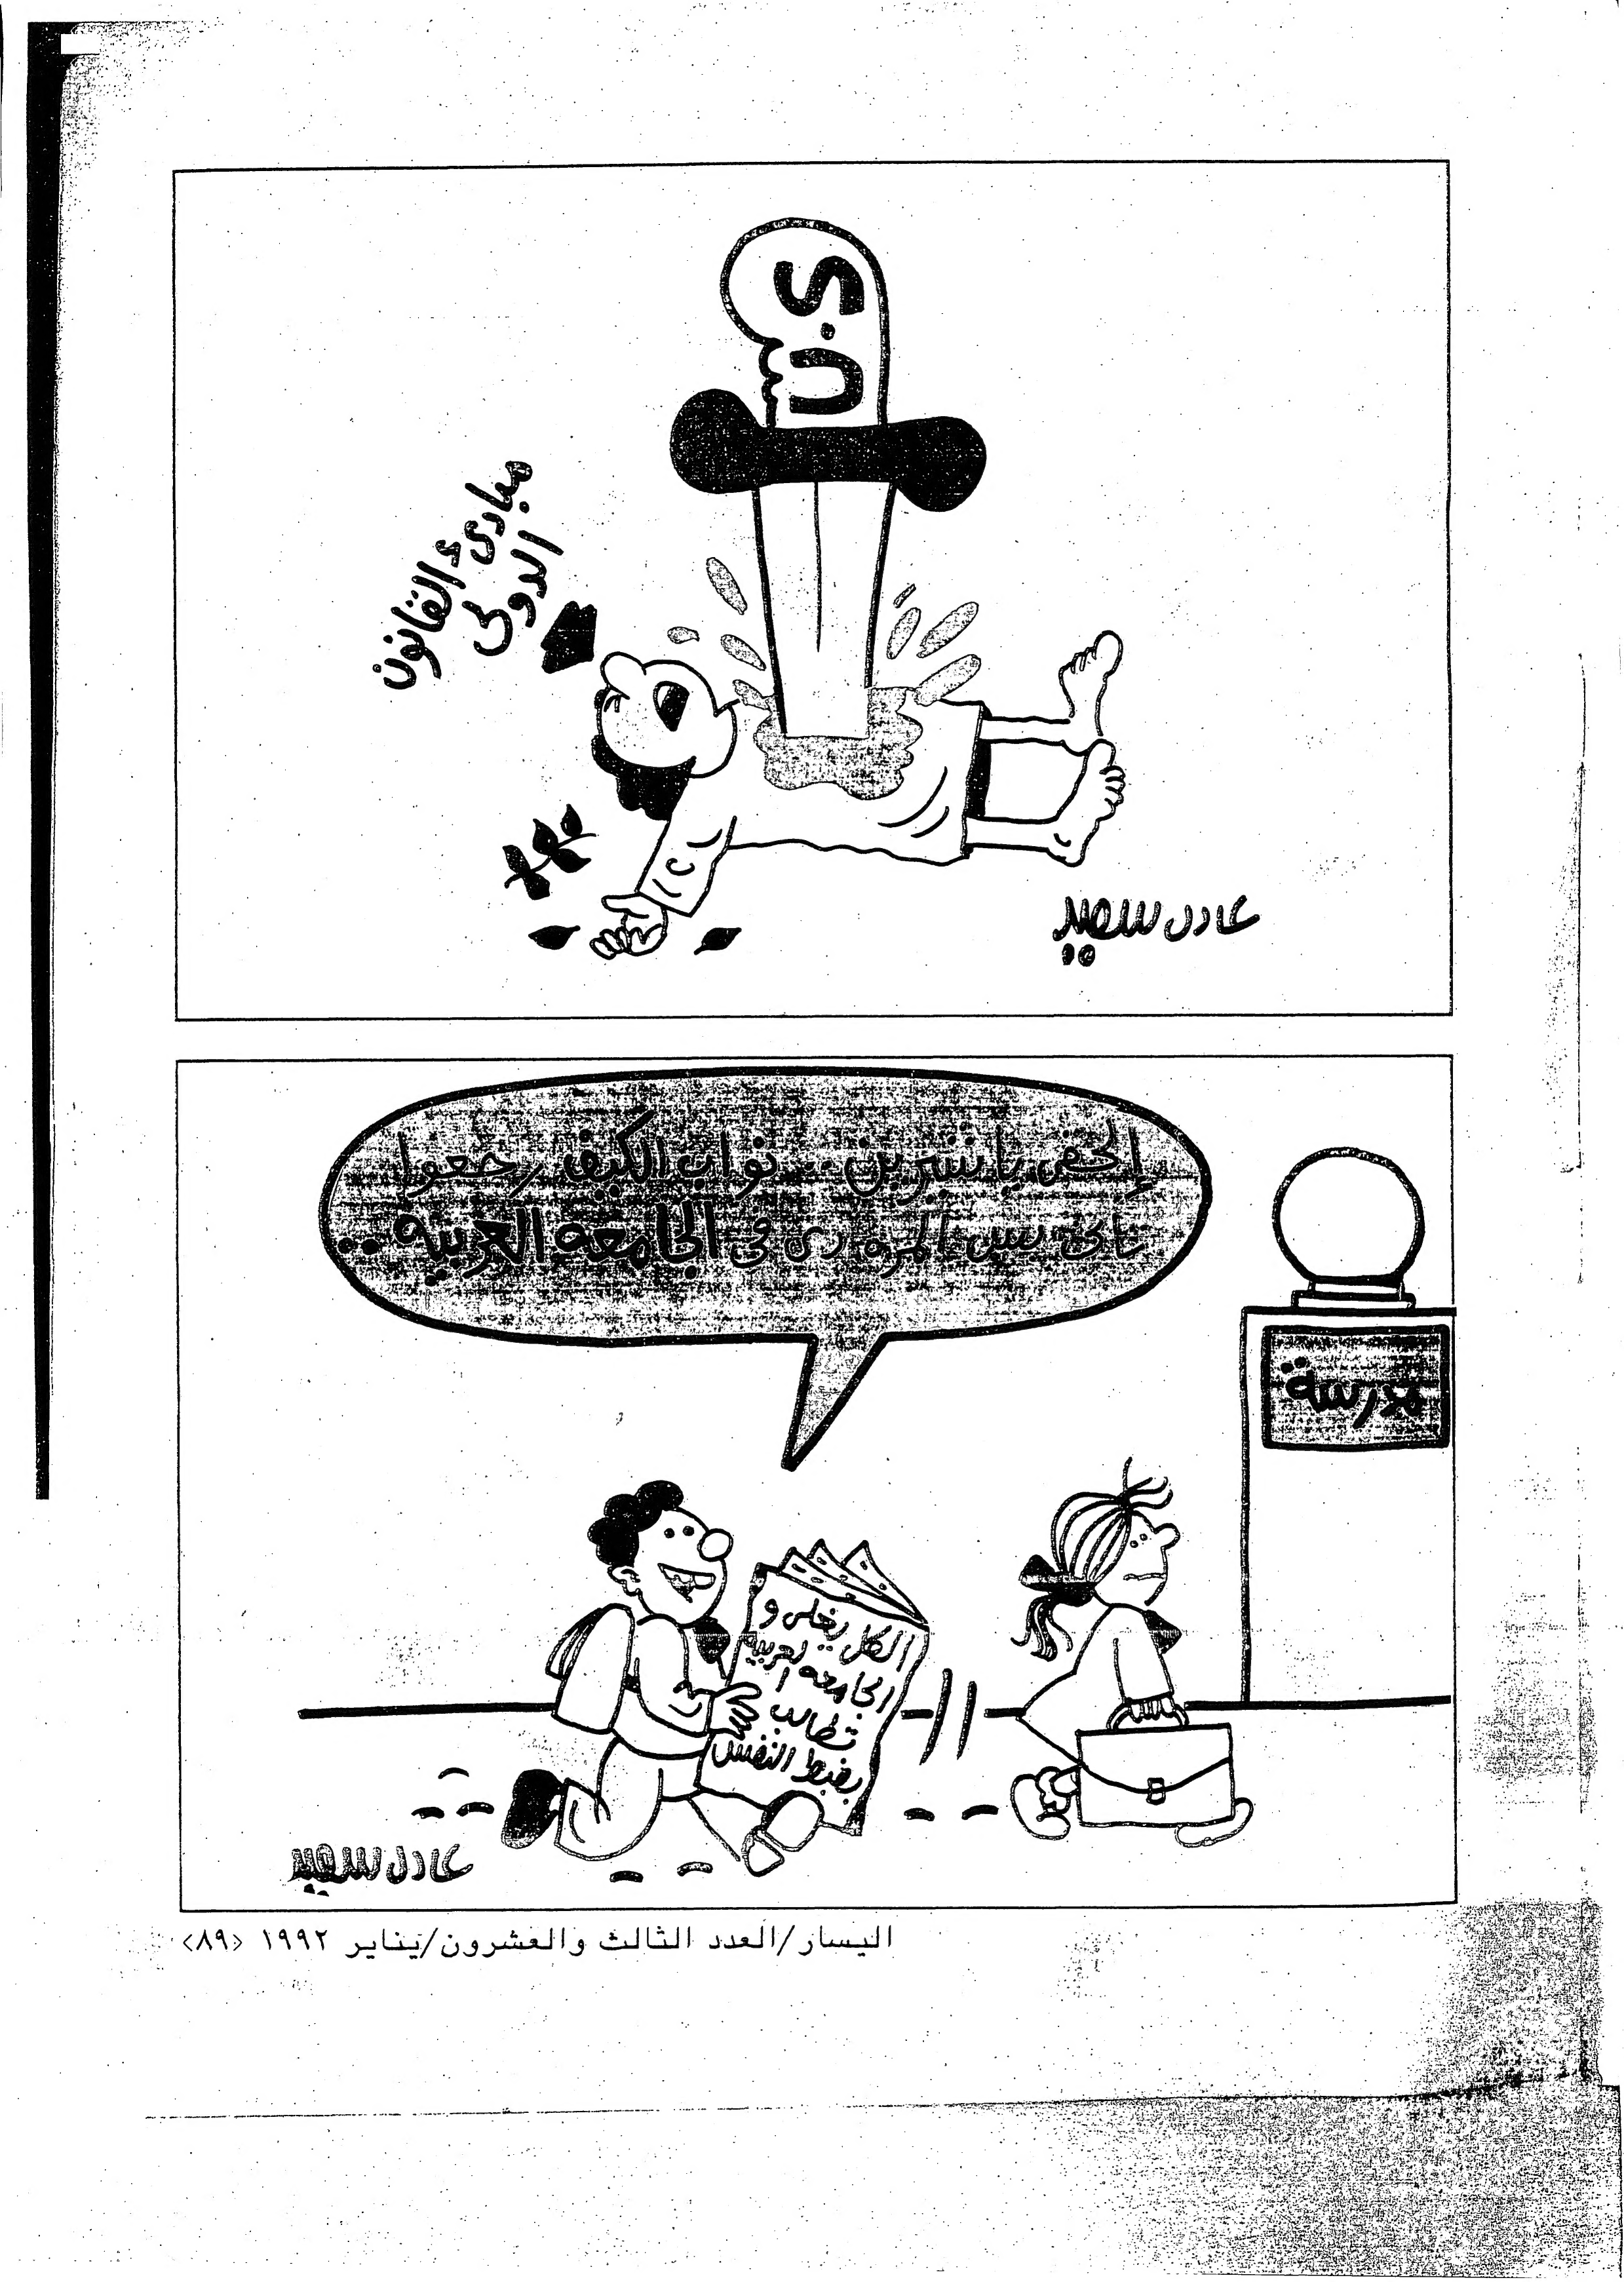 U.S
مبادئ القانون
الدولى
عادل سعيد
إلحقى يا شيرين .. نواب الكيف رجعوا
تانى بس المره دى فى الجامعه العربيه ..
مدرسة
الكل يغلى و
الجامعه العربيه
تطالب
بضبط النفس
عادل سعيد
اليسار/العدد الثالث والعشرون/يناير ١٩٩٢ <٨٩>